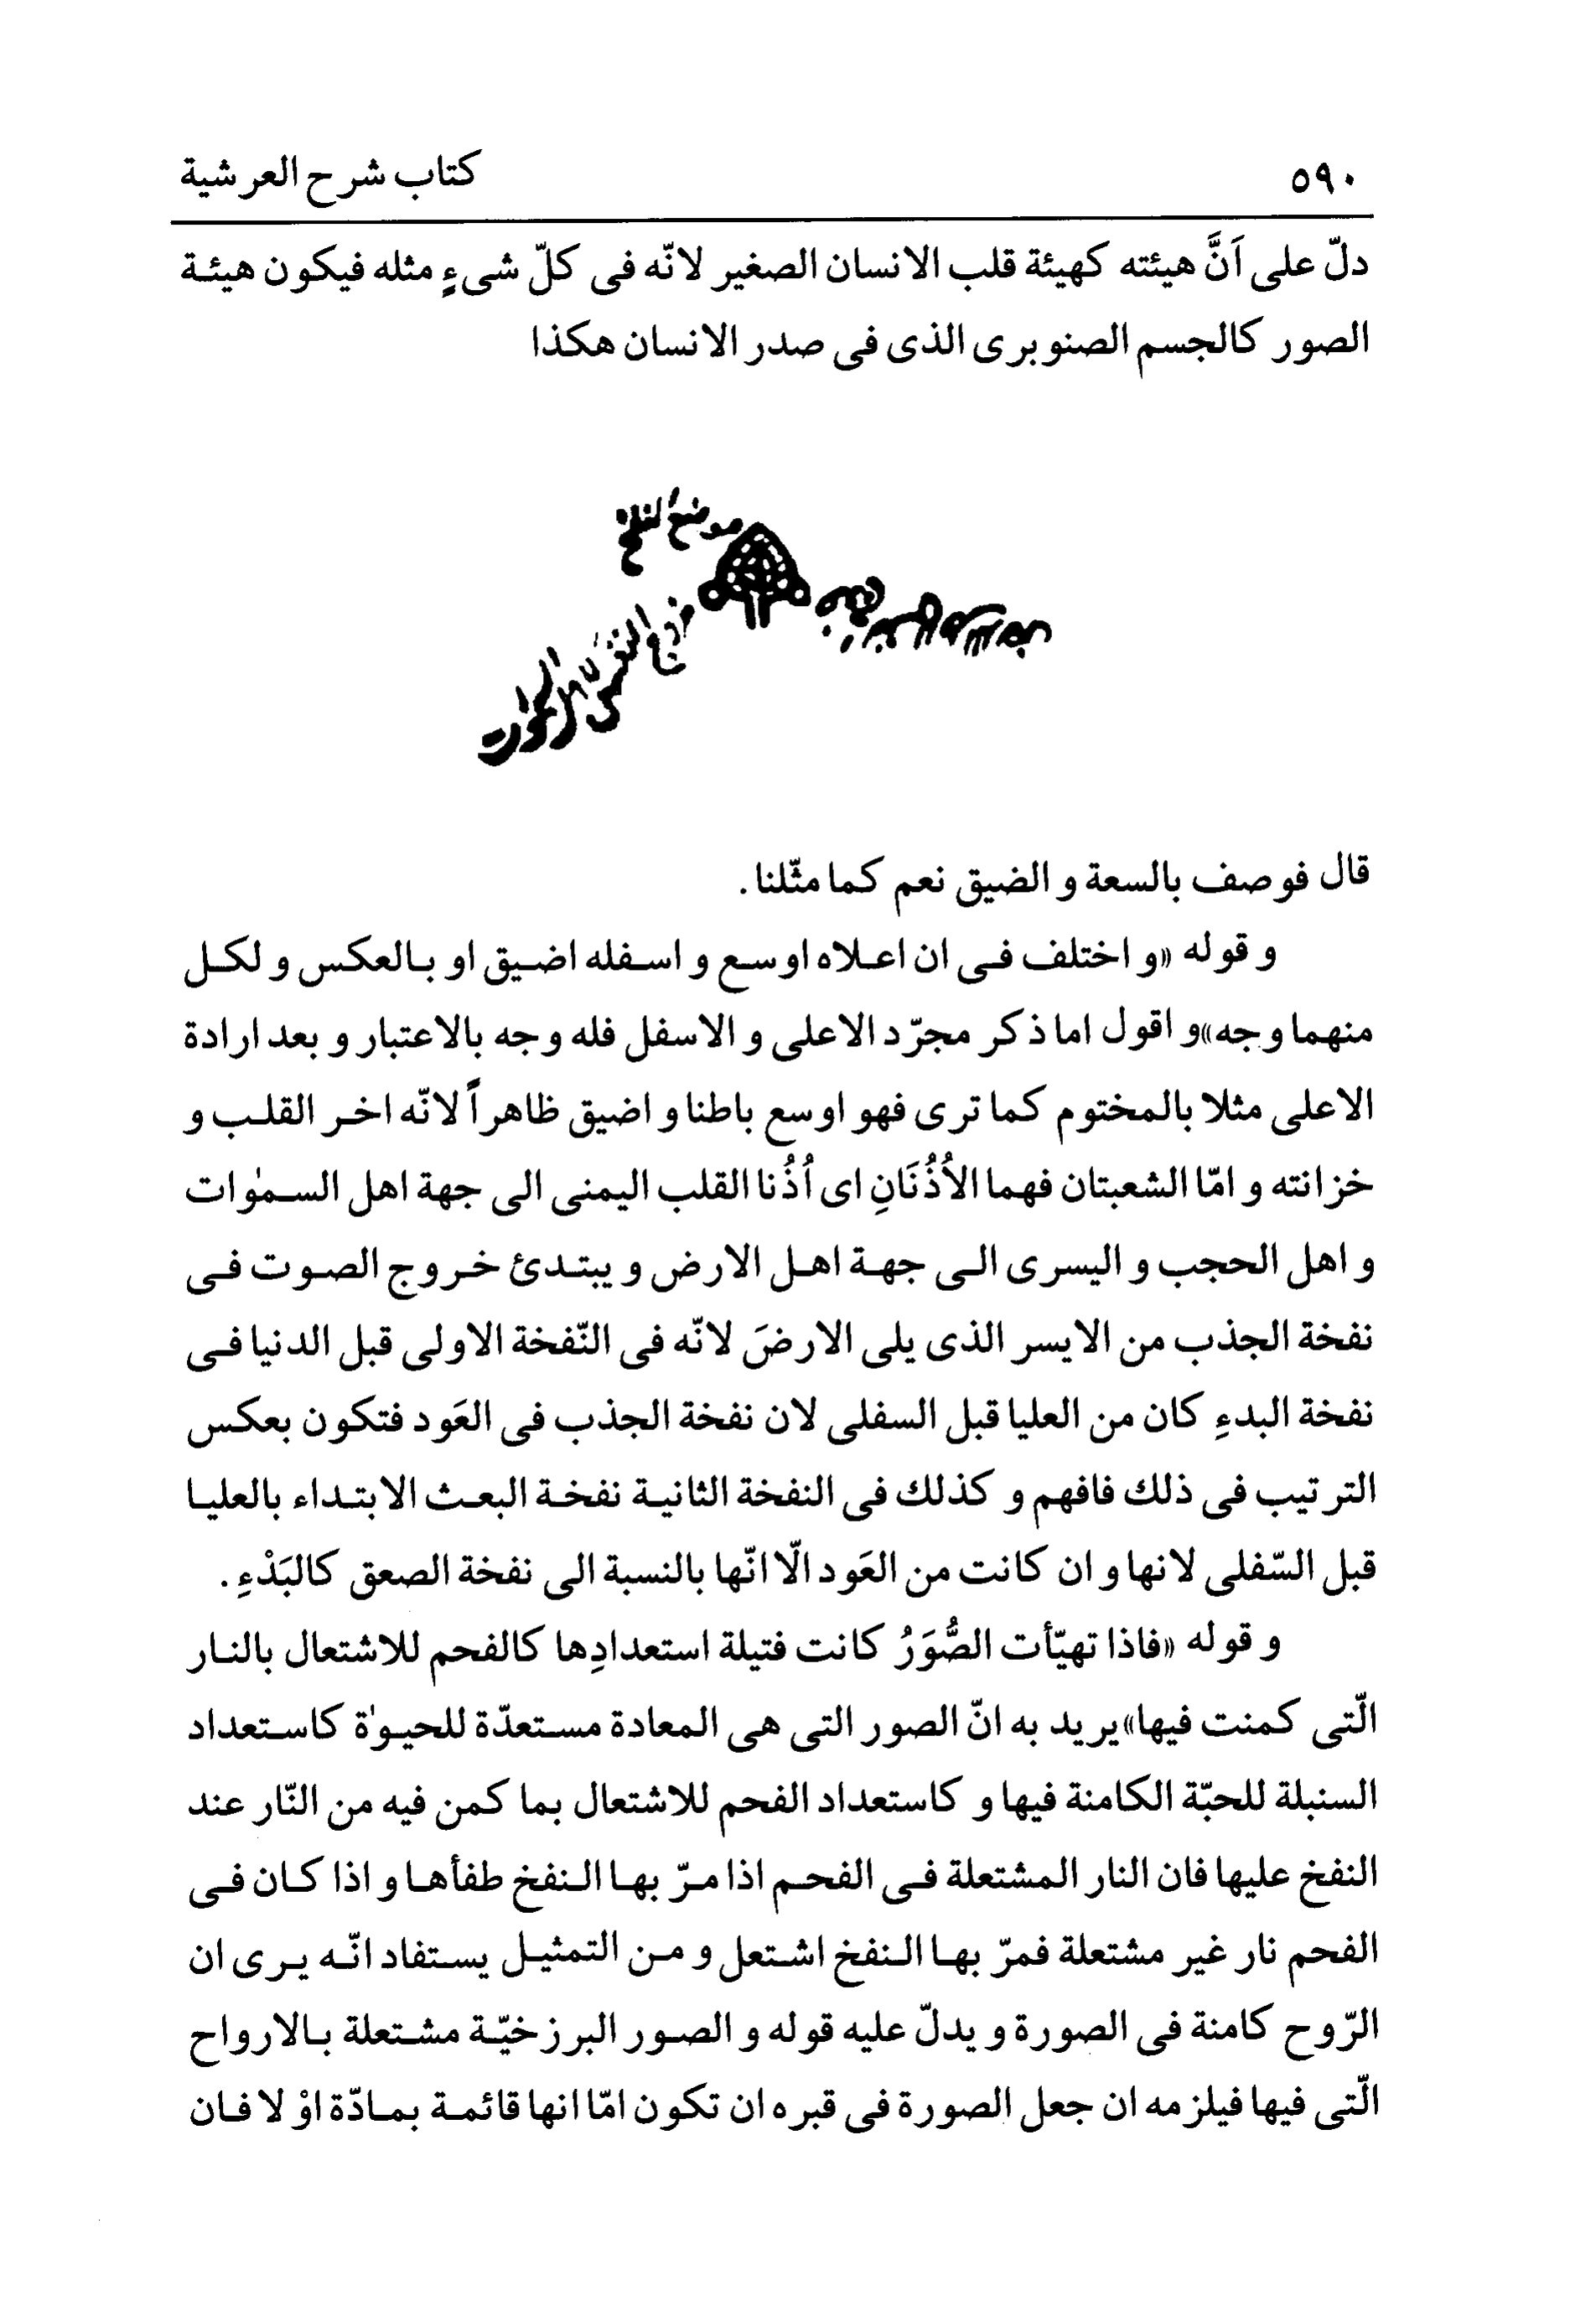 ٥٩٠ كتاب شرح العرشية
دلّ على اَنَّ هيئته كهيئة قلب الانسان الصغير لانّه فى كلّ شىءٍ مثله فيكون هيئة
الصور كالجسم الصنوبرى الذى فى صدر الانسان هكذا
موضع النفخ
قال فوصف بالسعة و الضيق نعم كما مثّلنا.
و قوله «و اختلف فى ان اعلاه اوسع و اسفله اضيق او بالعكس و لكل
منهما وجه» و اقول اما ذكر مجرّد الاعلى و الاسفل فله وجه بالاعتبار و بعد ارادة
الاعلى مثلا بالمختوم كما ترى فهو اوسع باطنا و اضيق ظاهراً لانّه اخر القلب و
خزانته و امّا الشعبتان فهما الاُذُنَانِ اى اُذُنا القلب اليمنى الى جهة اهل السمٰوات
و اهل الحجب و اليسرى الى جهة اهل الارض و يبتدئ خروج الصوت فى
نفخة الجذب من الايسر الذى يلى الارضَ لانّه فى النّفخة الاولى قبل الدنيا فى
نفخة البدءِ كان من العليا قبل السفلى لان نفخة الجذب فى العَود فتكون بعكس
الترتيب فى ذلك فافهم و كذلك فى النفخة الثانية نفخة البعث الابتداء بالعليا
قبل السّفلى لانها و ان كانت من العَود الّا انّها بالنسبة الى نفخة الصعق كالبَدْءِ.
و قوله «فاذا تهيّأت الصُّوَرُ كانت فتيلة استعدادِها كالفحم للاشتعال بالنار
الّتى كمنت فيها» يريد به انّ الصور التى هى المعادة مستعدّة للحيوٰة كاستعداد
السنبلة للحبّة الكامنة فيها و كاستعداد الفحم للاشتعال بما كمن فيه من النّار عند
النفخ عليها فان النار المشتعلة فى الفحم اذا مرّ بها النفخ طفأها و اذا كان فى
الفحم نار غير مشتعلة فمرّ بها النفخ اشتعل و من التمثيل يستفاد انّه يرى ان
الرّوح كامنة فى الصورة و يدلّ عليه قوله و الصور البرزخيّة مشتعلة بالارواح
الّتى فيها فيلزمه ان جعل الصورة فى قبره ان تكون امّا انها قائمة بمادّة اوْ لا فان